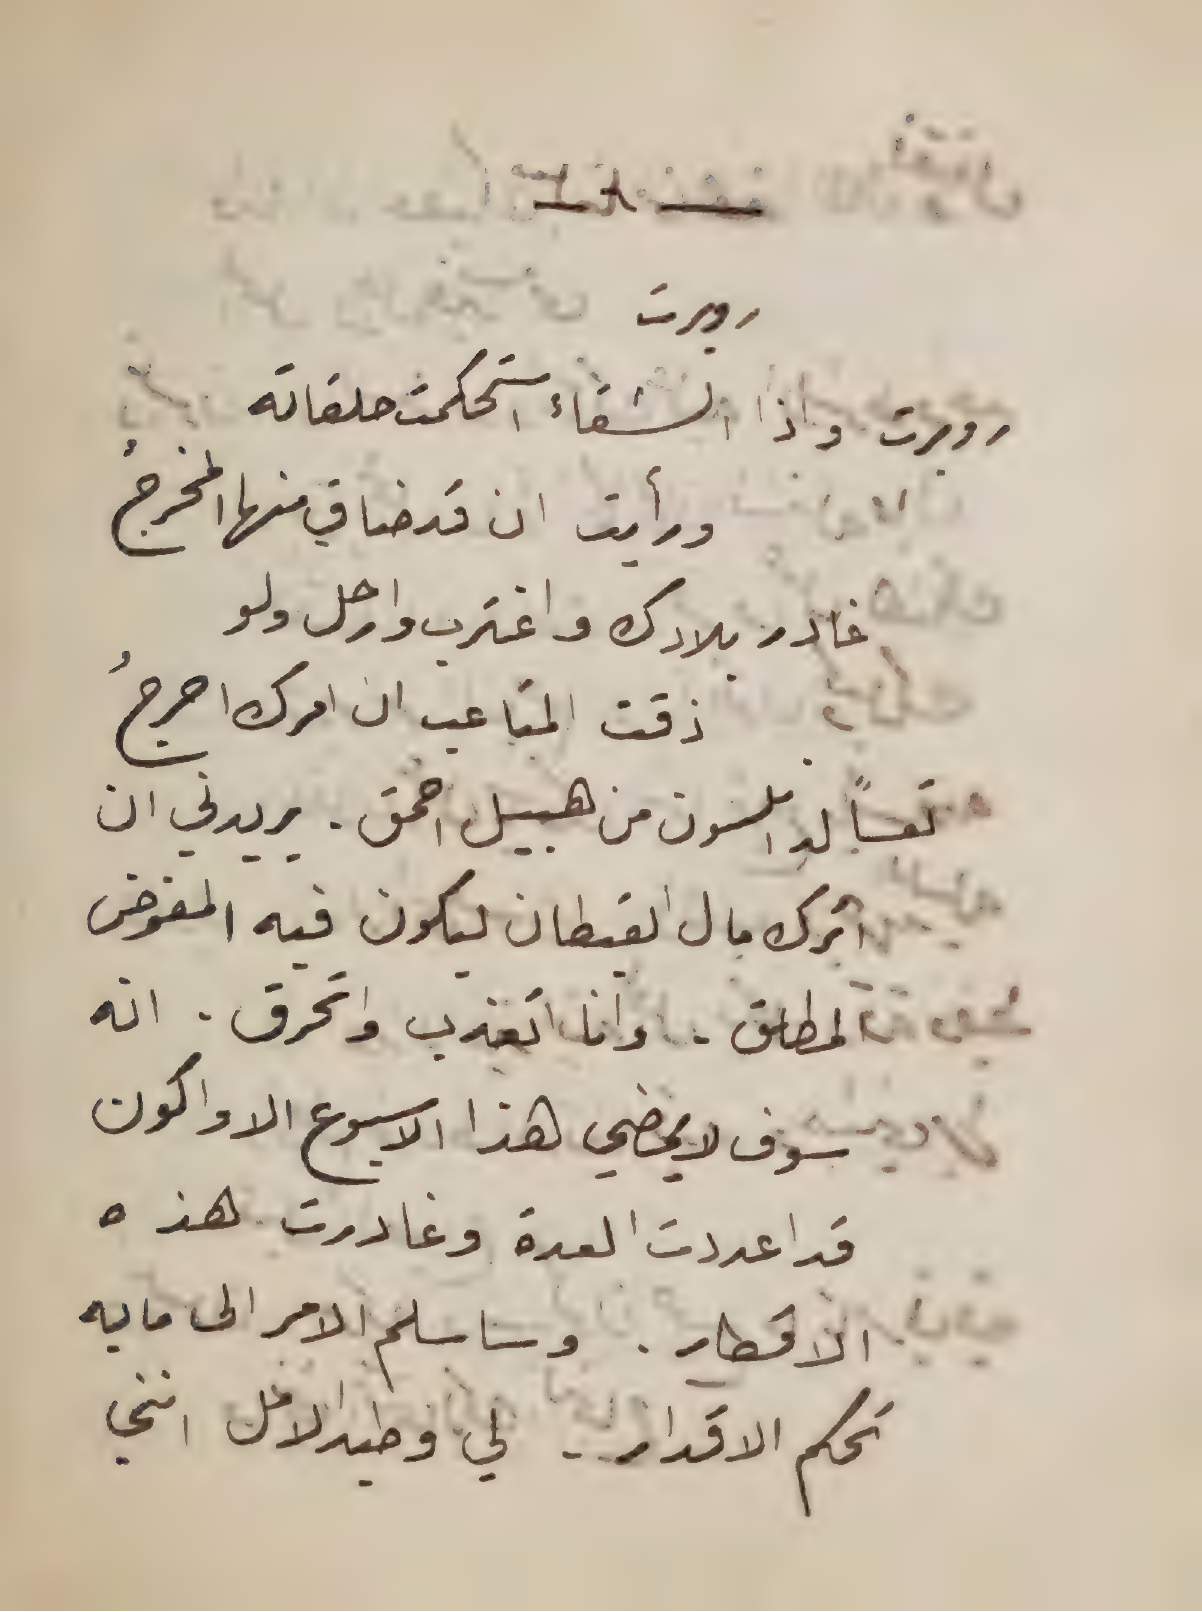 روبرت
روبرت واذا الشقاء استحكمت حلقاته
ورأيت ان قد ضاق منها المخرجُ
غادر بلادك واغترب وارحل ولو
ذقت المتاعب ان امرك احرجُ
تعساً من هبيل احمق . يريدني ان
اترك مال القبطان ليكون فيه المفوض
المطلق . وانا اتعذب واتحرق . انه
سوف لا يمضي هذا الاسبوع الا واكون
قد اعددت العدة وغادرت هذه
الاقطار . وساسلم الامر الى ما به
تحكم الاقدار . لي وطيد الامل انني